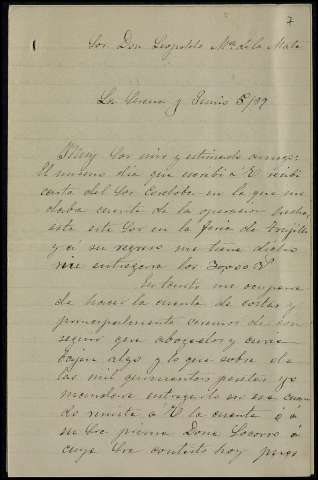 7
Sor. Don Leopoldo Ma. de la Mata
La Serena y Junio 5/09
Muy Sor mio y estimado amigo:
El mismo dia que escribi á V. recibi
carta del Sor Cordoba en la que me
daba cuenta de la operacion hecha
este Sor en la feria de Trujillo
y á su regreso me tiene dicho
me entregara los
En tanto me ocupare
de hacer la cuenta de costas y
principalmente veremos de con
seguir que abogados y curia
bajen algo y lo que sobre de
las mil quinientas pesetas yo
mandare entregarlo en esa
de remitir á V. la cuenta ó á
su Sra prima Doña Socorro á
cuya Sra contesto hoy pues